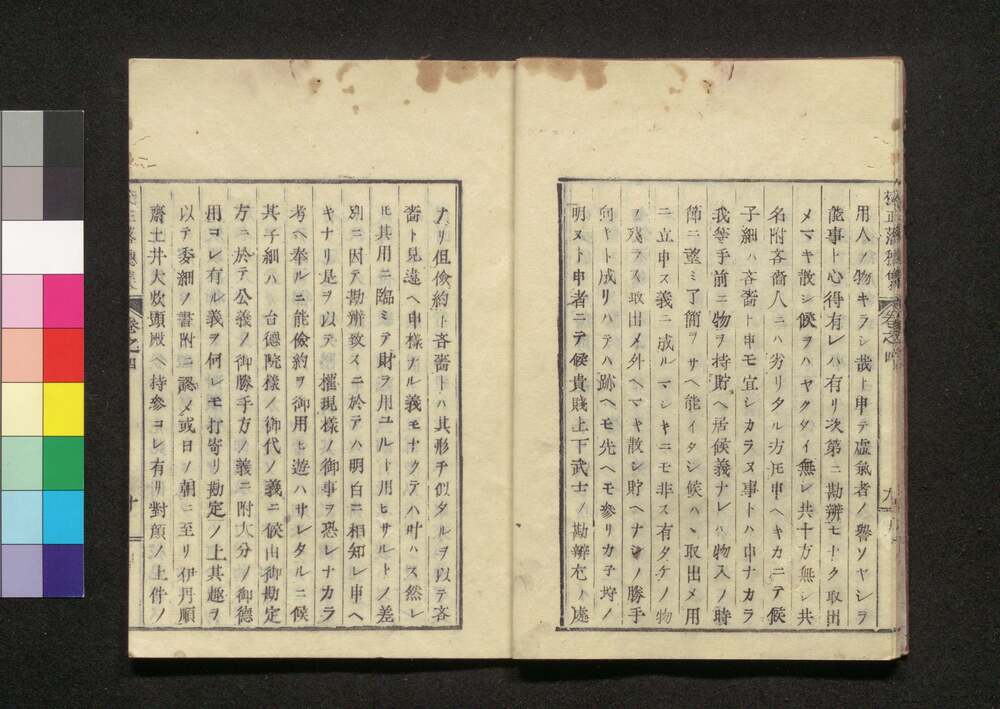 用人ノ物キラシ哉ト申テ虚氣者ノ譽ソヤシヲ
能事ト心得有レハ有リ次第ニ勘辨モナク取出
メマキ散シ候ヲハヤクタイ無シ共十方無シ共
名附吝嗇人ニハ劣リタル方ト申ヘキカニテ候
子細ハ吝嗇ト申モ宜シカラヌ事トハ申ナカラ
我等手前ニ物ヲ持貯ヘ居候義ナレハ物入ノ時
節ニ望ミ了簡ヲサヘ能イタシ候ハヽ取出メ用
ニ立申ス義ニ成ルマシキニモ非ス有タケノ物
ヲ残ラス取出メ外ヘマキ散シ貯ヘナシノ勝手
向キト成リハテハ跡ヘモ先ヘモ参リカ子埒ノ
明ヌト申者ニテ候貴賤上下武士ノ勘辨尤ノ處
ナリ但儉約ト吝嗇トハ其形チ似タルヲ以テ吝
嗇ト見違ヘ申様ナル義モナクテハ叶ハス然レ
ヒ其用ニ臨ミテ財ヲ用ユルト用ヒサルトノ差
別ニ因テ勘辨致スニ於テハ明白ニ相知レ申ヘ
キナリ是ヲ以テ 權現様ノ御事ヲ恐レナカラ
考ヘ奉ルニ能儉約ヲ御用ヒ遊ハサレタルニ候
其子細ハ 台德院様ノ御代ノ義ニ候由御勘定
方ニ於テ公義ノ御勝手方ノ義ニ附大分ノ御德
用コレ有ル義ヲ何レモ打寄リ勘定ノ上其趣ヲ
以テ委細ノ書附ニ認メ或日ノ朝ニ至リ伊丹順
齋土井大炊頭殿ヘ持參コレ有リ對顏ノ上件ノ
卷之四
九
卷之四
十